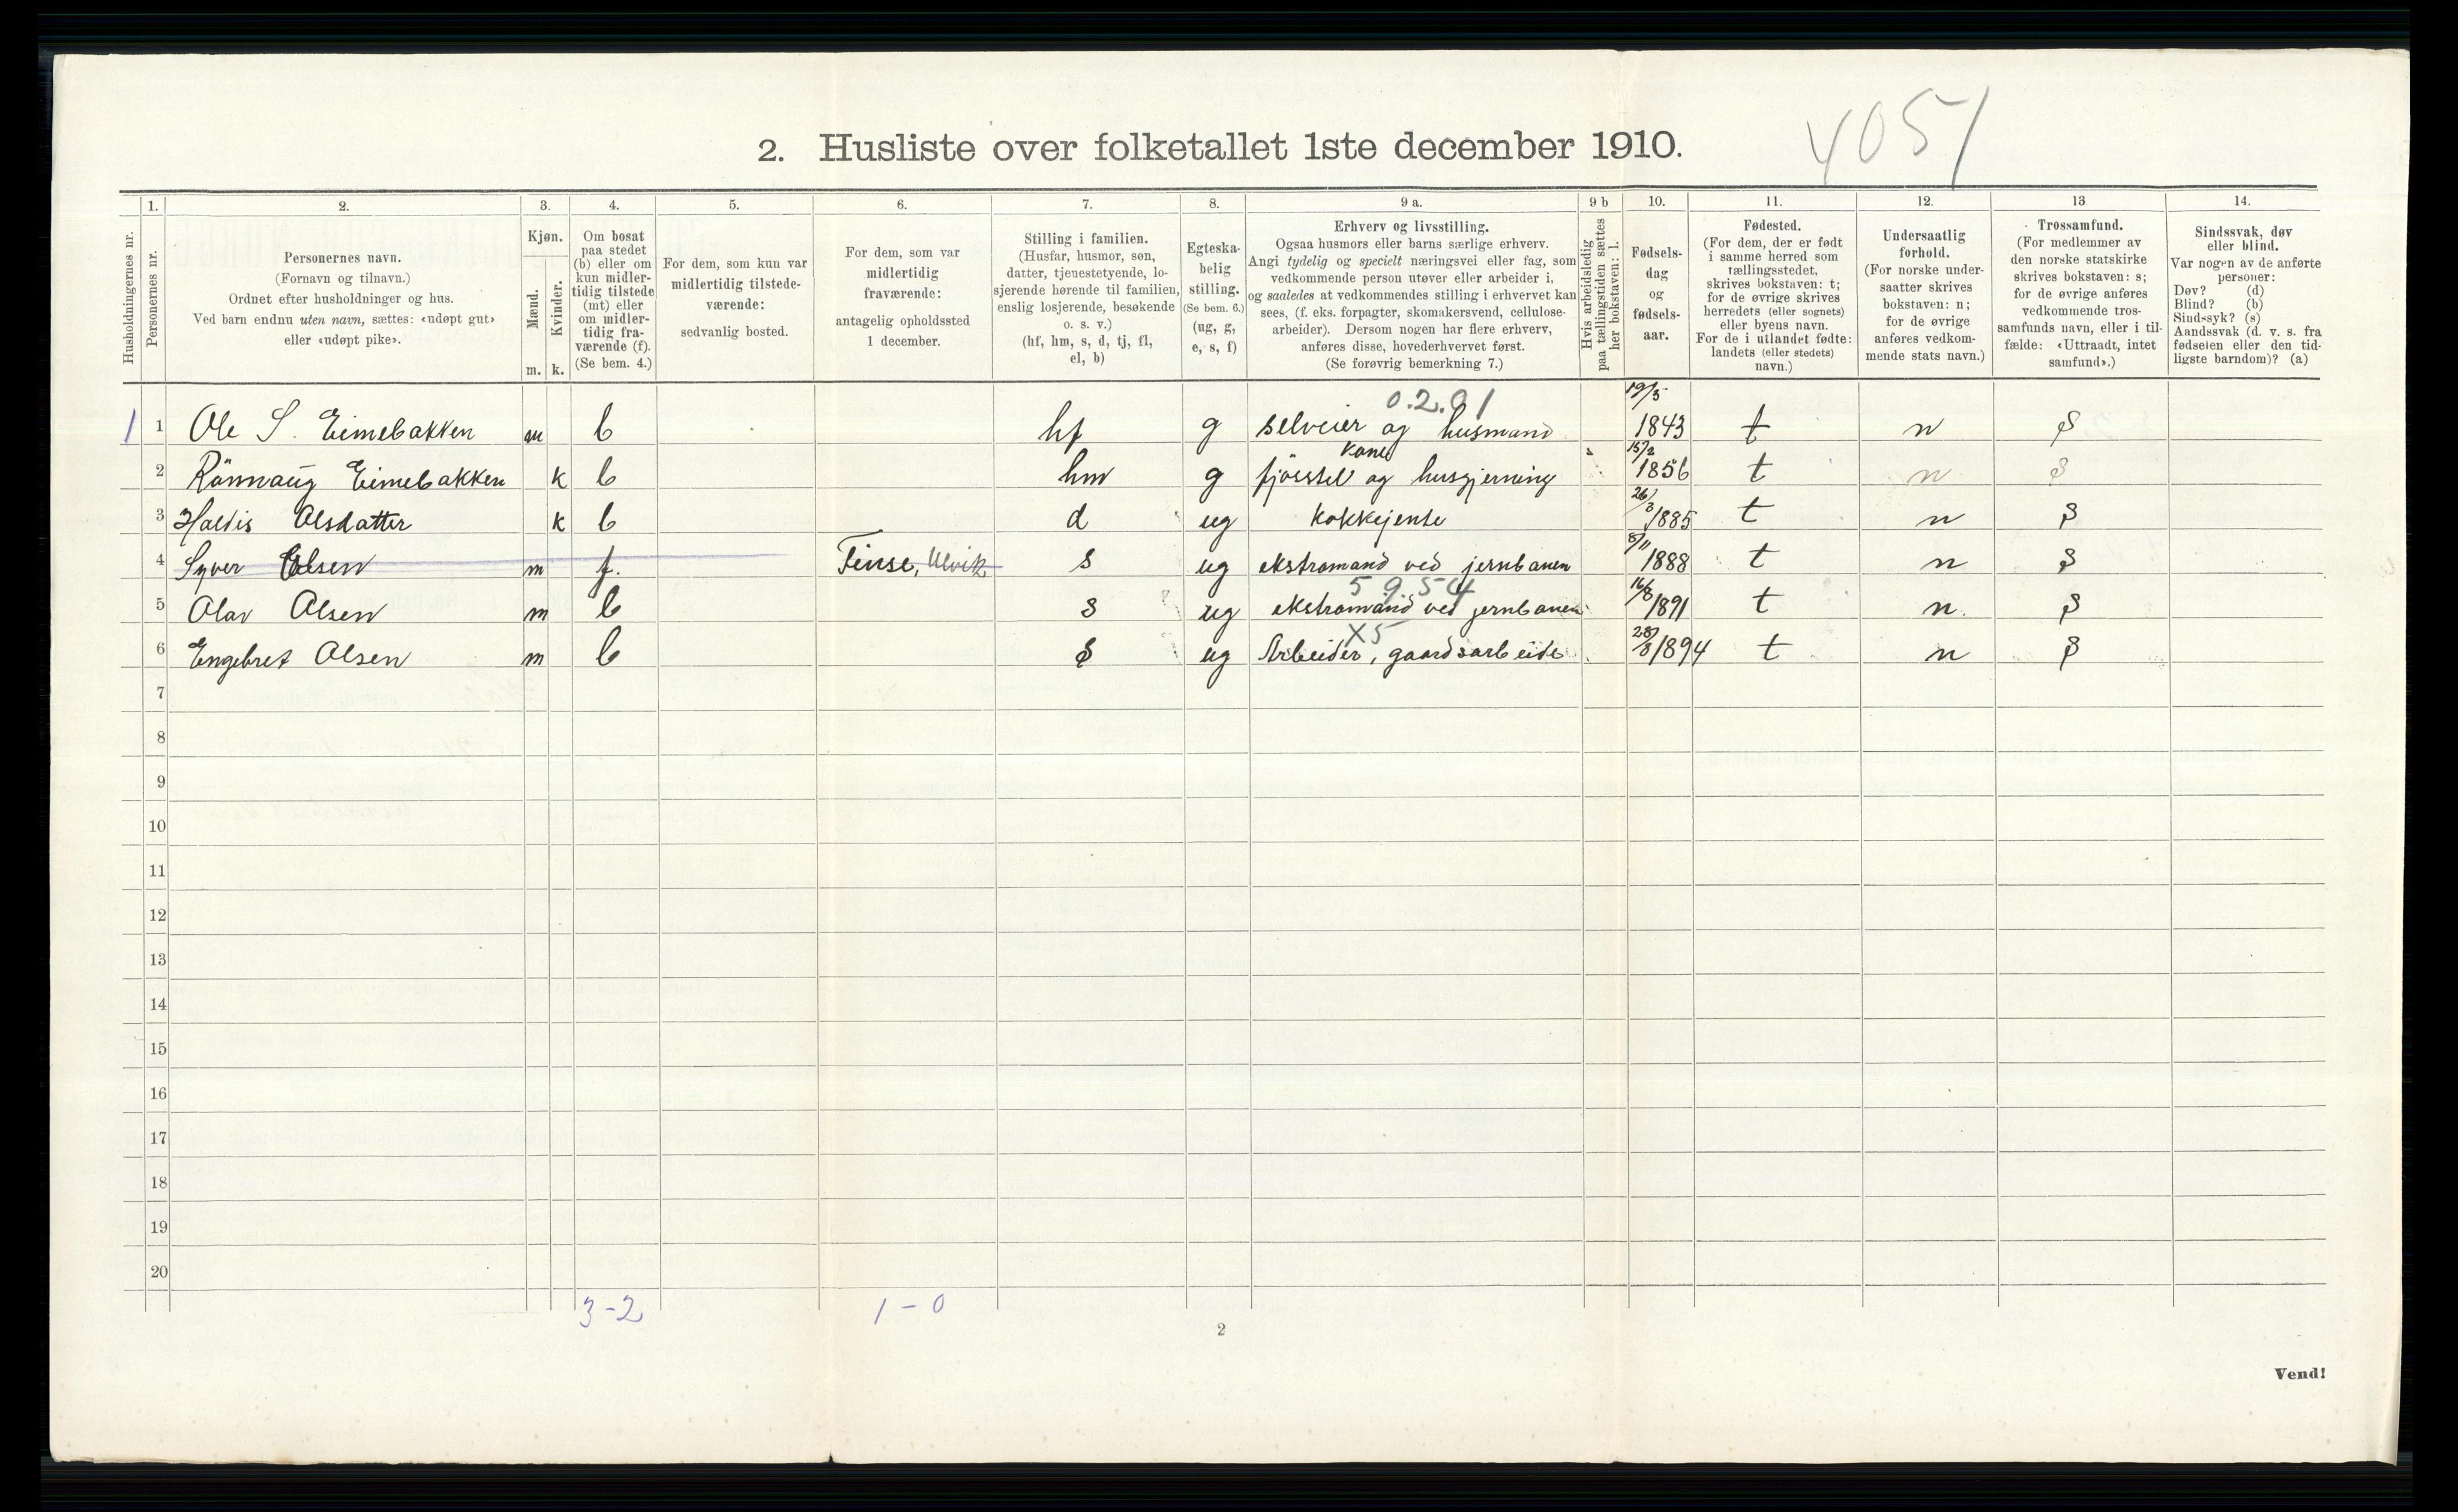 4051
2. Husliste over folketallet 1ste december 1910.
Husholdningernes nr.
1.
Personernes nr.
2.
Personernes navn.
(Fornavn og tilnavn.)
Ordnet efter husholdninger og hus.
Ved barn endnu uten navn, sættes: «udøpt gut»
eller «udøpt pike».
3.
Kjøn.
Mænd.
Kvinder.
m.
k.
4.
Om bosat
paa stedet
(b) eller om
kun midler-
tidig tilstede
(mt) eller
om midler-
tidig fra-
værende (f).
(Se bem. 4.)
5.
For dem, som kun var
midlertidig tilstede-
værende:
sedvanlig bosted.
6.
For dem, som var
midlertidig
fraværende:
antagelig opholdssted
1 december.
7.
Stilling i familien.
(Husfar, husmor, søn,
datter, tjenestetyende, lo-
sjerende hørende til familien,
enslig losjerende, besøkende
o. s. v.)
(hf, hm, s, d, tj, fl,
el, b)
8.
Egteska-
belig
stilling.
(Se bem. 6.)
(ug, g,
e, s, f)
9 a.
Erhverv og livsstilling.
Ogsaa husmors eller barns særlige erhverv.
Angi tydelig og specielt næringsvei eller fag, som
vedkommende person utøver eller arbeider i,
og saaledes at vedkommendes stilling i erhvervet kan
sees, (f. eks. forpagter, skomakersvend, cellulose-
arbeider). Dersom nogen har flere erhverv,
anføres disse, hovederhvervet først.
(Se forøvrig bemerkning 7.)
9 b
Hvis arbeidsledig
paa tællingstiden sættes
her bokstaven: l.
10.
Fødsels-
dag
og
fødsels-
aar.
11.
Fødested.
(For dem, der er født
i samme herred som
tællingsstedet,
skrives bokstaven: t;
for de øvrige skrives
herredets (eller sognets)
eller byens navn.
For de i utlandet fødte:
landets (eller stedets)
navn.)
12.
Undersaatlig
forhold.
(For norske under-
saatter skrives
bokstaven: n;
for de øvrige
anføres vedkom-
mende stats navn.)
13.
Trossamfund.
(For medlemmer av
den norske statskirke
skrives bokstaven: s;
for de øvrige anføres
vedkommende tros-
samfunds navn, eller i til-
fælde: «Uttraadt, intet
samfund».)
14.
Sindssvak, døv
eller blind.
Var nogen av de anførte
personer:
Døv? (d)
Blind? (b)
Sindssyk? (s)
Aandssvak (d. v. s. fra
fødselen eller den tid-
ligste barndom)? (a)
0.2.01
1 1 Ole S. Eimebakken m b hf g selveier og husmand 19/5 1843 t n s
kone
2 Rönnaug Eimebakken k b hm g fjösstel og husgjerning 15/2 1856 t n s
3 Haldis Olsdatter k b d ug kokkejente 26/3 1885 t n s
4 Syver Olsen m f. Finse, Ulvik s ug ekstramand ved jernbanen 8/11 1888 t n s
59.54
5 Olav Olsen m b s ug ekstramand ved jernbanen 16/8 1891 t n s
X5
6 Engebret Olsen m b s ug Arbeider, gaardsarbeide 28/8 1894 t n s
7
8
9
10
11
12
13
14
15
16
17
18
19
20
3-2 1-0
2
Vend!